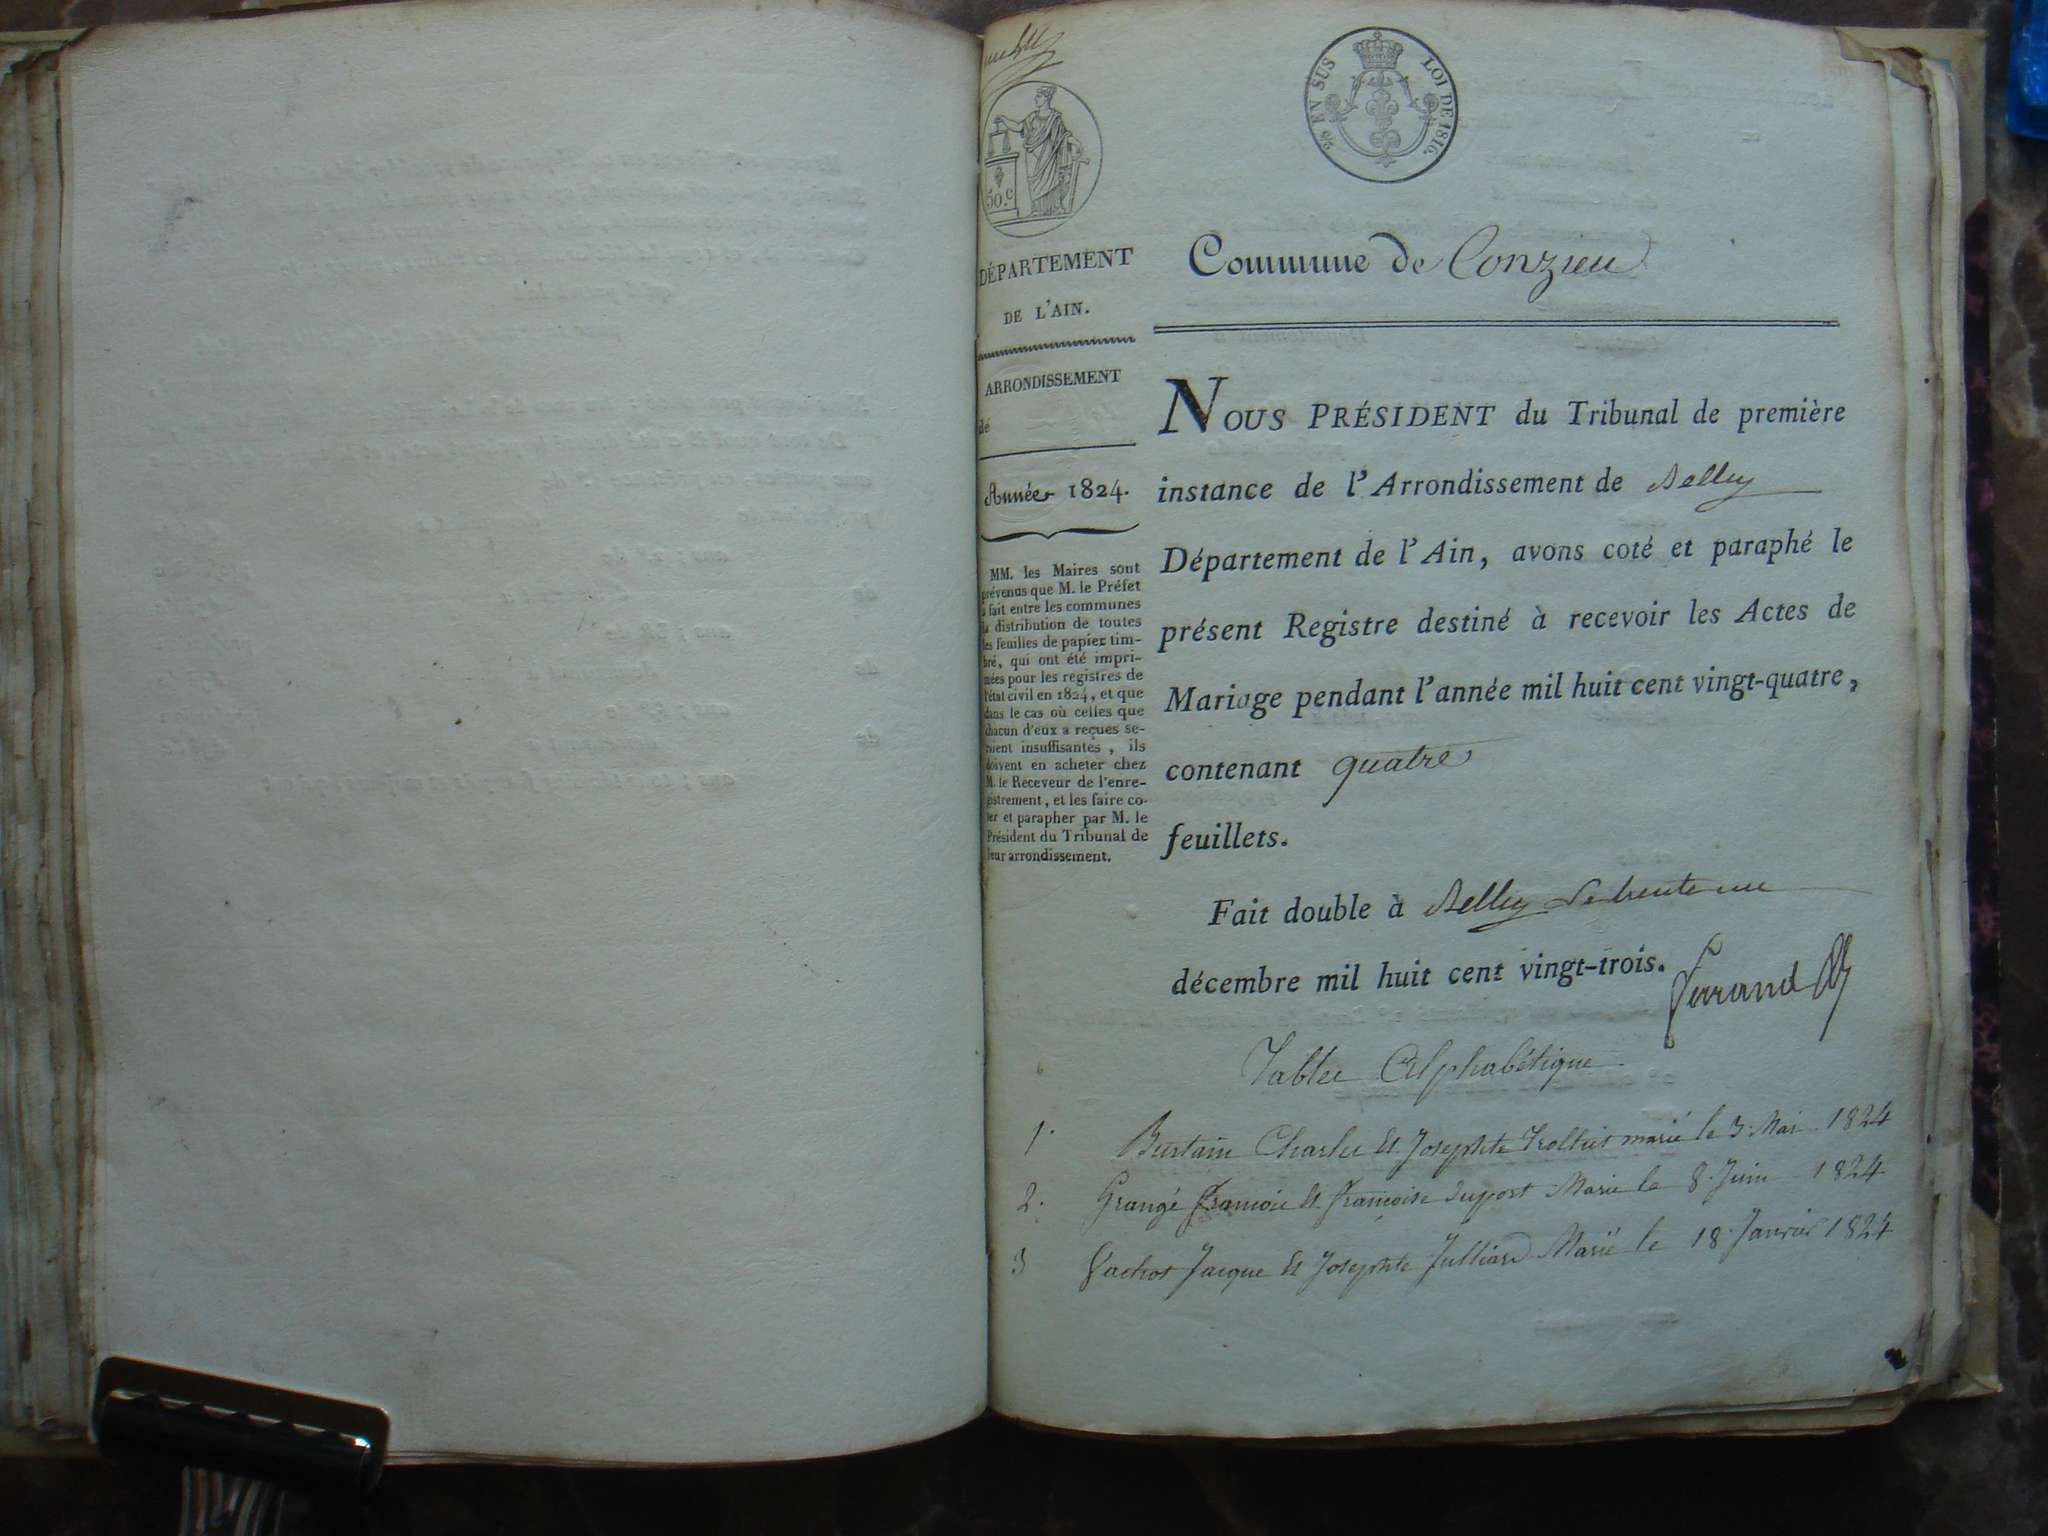 50.c
5/6 EN SUS LOI DE 1816.
DÉPARTEMENT
DE L'AIN.
ARRONDISSEMENT
de
Année 1824.
MM. les Maires sont
prévenus que M. le Préfet
a fait entre les communes
la distribution de toutes
les feuilles de papier tim-
bré, qui ont été impri-
mées pour les registres de
l'état civil en 1824, et que
dans le cas où celles que
chacun d'eux a reçues se-
raient insuffisantes, ils
doivent en acheter chez
M. le Receveur de l'enre-
gistrement, et les faire co-
ter et parapher par M. le
Président du Tribunal de
leur arrondissement.
Commune de Conzieu
NOUS PRÉSIDENT du Tribunal de première
instance de l'Arrondissement de Belley
Département de l'Ain, avons coté et paraphé le
présent Registre destiné à recevoir les Actes de
Mariage pendant l'année mil huit cent vingt-quatre,
contenant quatre
feuillets.
Fait double à Belley le trente un
décembre mil huit cent vingt-trois.
Ferrand
Table Alphabétique
1. Burtain Charles Et Josephte Trolliet marié le 3 Mai 1824
2. Grangé François Et Françoise Duport Marié le 8 Juin 1824
3 Vachot Jacque Et Josephte Julliard Marié le 18 Janvier 1824